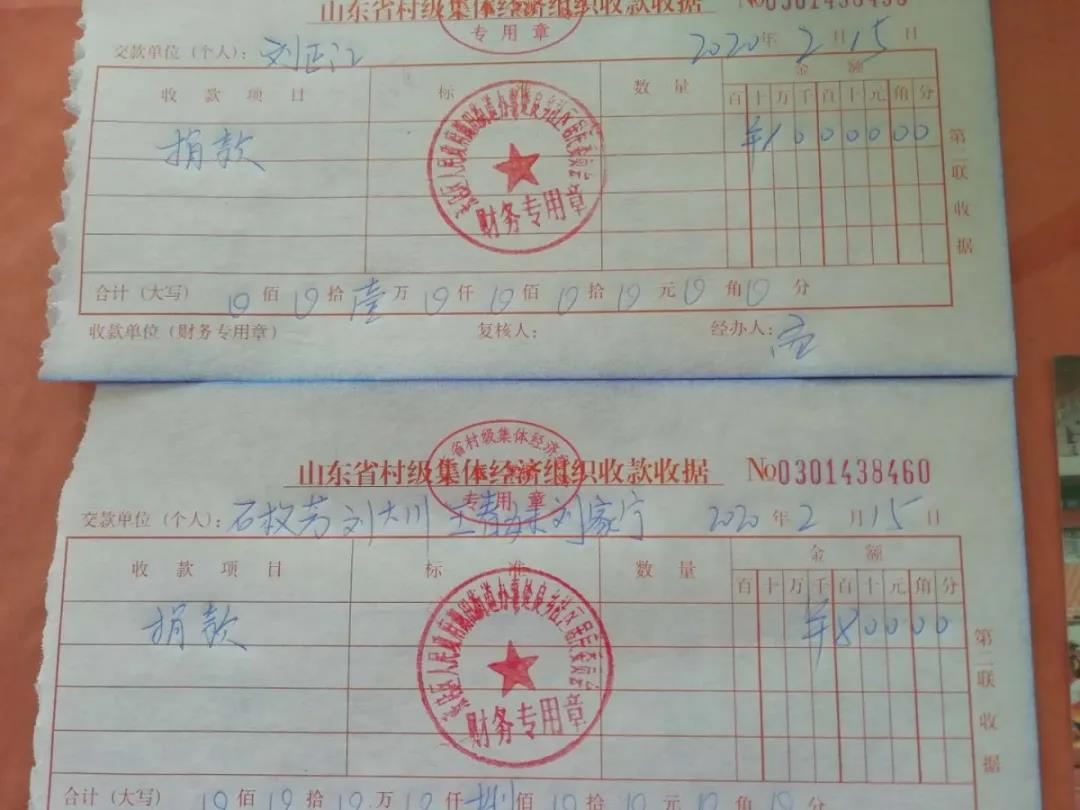 山东省村级集体经济组织收款收据 No0301438
专用章
交款单位（个人）：刘正江 2020年2月15日
收款项目 标准 数量 金额
百十万千百十元角分
捐款 ¥1000000
财务专用章
第二联收据
合计（大写） 0佰0拾壹万0仟0佰0拾0元0角0分
收款单位（财务专用章） 复核人： 经办人：
省村级集体经济
山东省村级集体经济组织收款收据 No0301438460
专用章
交款单位（个人）：石枚芳 刘大川 王青 刘家宁 2020年2月15日
收款项目 标准 数量 金额
百十万千百十元角分
捐款 ¥80000
财务专用章
第二联收据
合计（大写） 0佰0拾0万0仟捌佰0拾0元0角0分